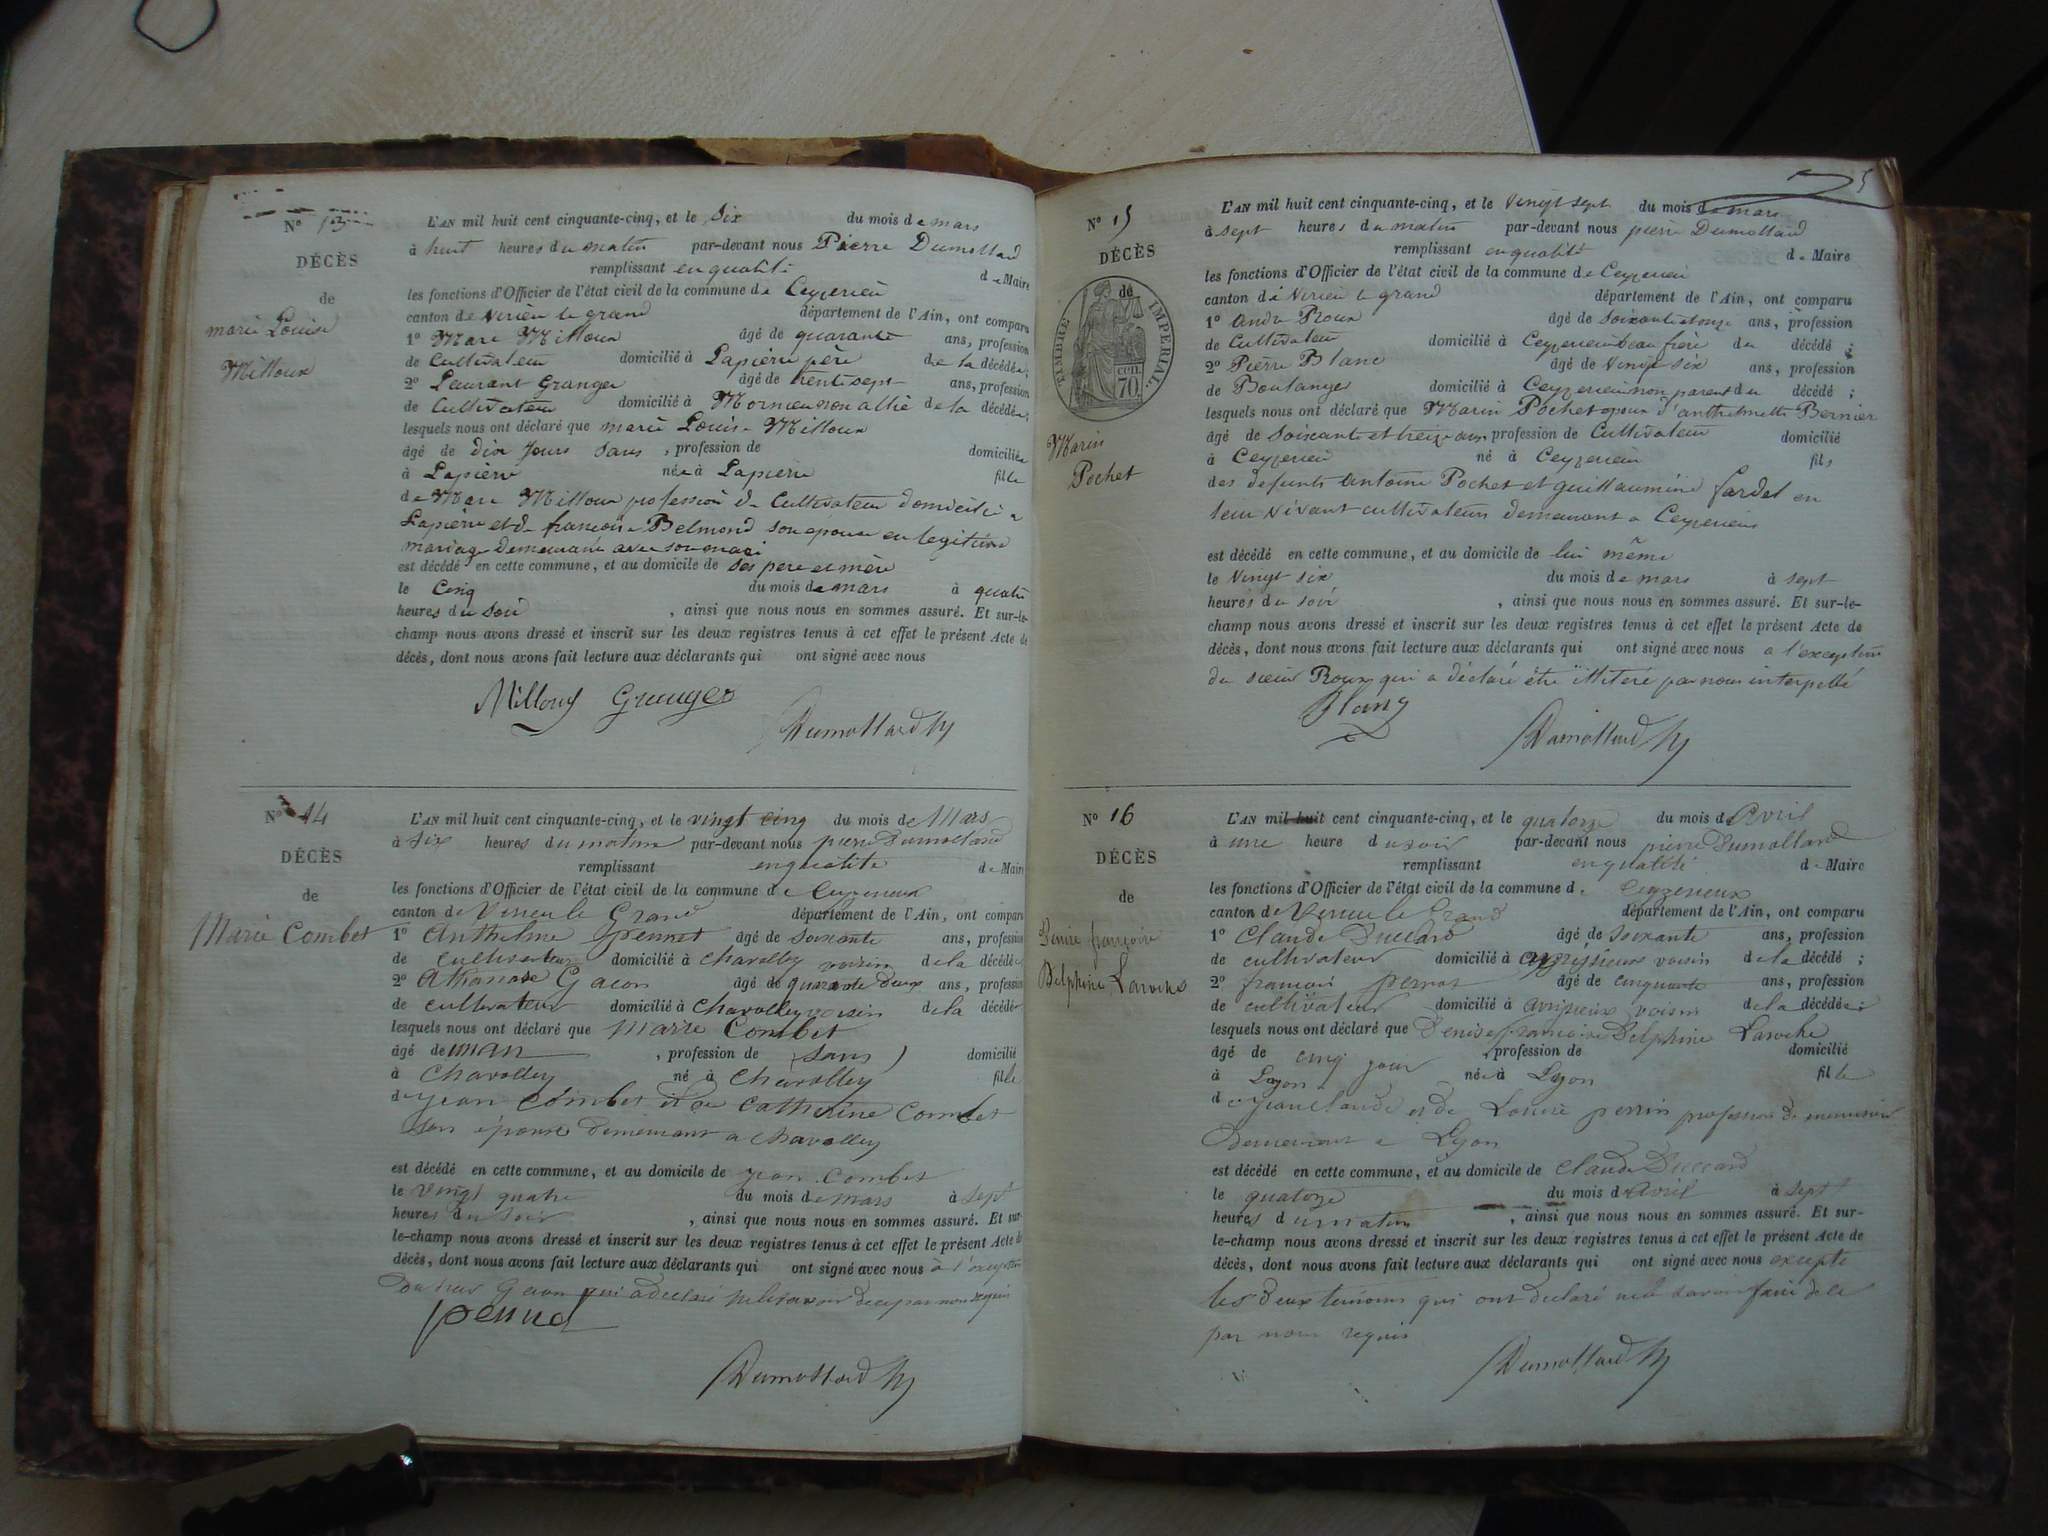 N° 13
DÉCÈS
de
marie Louise
Milloux
L'AN mil huit cent cinquante-cinq, et le six du mois de mars
à huit heures du matin par-devant nous Pierre Dumollard
remplissant en qualité de Maire
les fonctions d'Officier de l'état civil de la commune de Ceyzerieu
canton de Virieu le grand département de l'Ain, ont comparu
1° Marc Milloux âgé de quarante ans, profession
de Cultivateur domicilié à Lapierre père de la décédée;
2° Laurant Granger âgé de trente sept ans, profession
de Cultivateur domicilié à Mornieu non allié de la décédée;
lesquels nous ont déclaré que marie Louise Milloux
âgé de dix jours sans, profession de domiciliée
à Lapierre née à Lapierre fille
de Marc Milloux profession de Cultivateur domicilié a
Lapierre et de françoise Belmond son epouse en legitime
mariage Demeurant avec son mari
est décédé en cette commune, et au domicile de ses pere et mère
le Cinq du mois de mars à quatre
heures du soir, ainsi que nous nous en sommes assuré. Et sur-le-
champ nous avons dressé et inscrit sur les deux registres tenus à cet effet le présent Acte de
décès, dont nous avons fait lecture aux déclarants qui ont signé avec nous
Milloux Granger
Dumollard
N° 14
DÉCÈS
de
Marie Combet
L'AN mil huit cent cinquante-cinq, et le vingt cinq du mois de Mars
à six heures du matin par-devant nous pierre Dumollard
remplissant en qualité de Maire
les fonctions d'Officier de l'état civil de la commune de Ceyzerieux
canton de Virieu le Grand département de l'Ain, ont comparu
1° Anthelme pennet âgé de soixante ans, profession
de cultivateur domicilié à Chavolley voisin de la décédée
2° Athanase Gacon âgé de quarante deux ans, profession
de cultivateur domicilié à Chavolley voisin de la décédée
lesquels nous ont déclaré que Marie Combet
âgé de un an, profession de (sans) domicilié
à Chavolley né à Chavolley fille
de jean Combet et de Catherine Combet
son épouse demeurant a Chavolley
est décédé en cette commune, et au domicile de jean Combet
le vingt quatre du mois de mars à sept
heures du soir, ainsi que nous nous en sommes assuré. Et sur-
le-champ nous avons dressé et inscrit sur les deux registres tenus à cet effet le présent Acte de
décès, dont nous avons fait lecture aux déclarants qui ont signé avec nous à l'exception
Gacon qui a declaré ne le savoir par nous requis
pennet
Dumollard
5
N° 15
DÉCÈS
de
TIMBRE IMPERIAL
70 cen.
Marin
Pochet
L'AN mil huit cent cinquante-cinq, et le vingt sept du mois de mars
à sept heures du matin par-devant nous pierre Dumollard
remplissant en qualité de Maire
les fonctions d'Officier de l'état civil de la commune de Ceyzerieu
canton de Virieu le grand département de l'Ain, ont comparu
1° André Roux âgé de soixante et onze ans, profession
de Cultivateur domicilié à Ceyzerieu beau frère du décédé;
2° Pierre Blanc âgé de vingt six ans, profession
de Boulanger domicilié à Ceyzerieu non parent du décédé;
lesquels nous ont déclaré que Marin Pochet epoux d'anthelmette Bernier
âgé de soixante et treize ans profession de Cultivateur domicilié
à Ceyzerieu né à Ceyzerieu fils
des defunts antoine Pochet et guillaumine fardel en
leur vivant cultivateurs demeurant a Ceyzerieu
est décédé en cette commune, et au domicile de lui même
le vingt six du mois de mars à sept
heures du soir, ainsi que nous nous en sommes assuré. Et sur-le-
champ nous avons dressé et inscrit sur les deux registres tenus à cet effet le présent Acte de
décès, dont nous avons fait lecture aux déclarants qui ont signé avec nous a l'exception
du sieur Roux qui a déclaré être illiteré par nous interpellé
Blanc
Dumollard
N° 16
DÉCÈS
de
Denise françoise
Delphine Laroche
L'AN mil huit cent cinquante-cinq, et le quatorze du mois d'avril
à une heure du soir par-devant nous pierre Dumollard
remplissant en qualité de Maire
les fonctions d'Officier de l'état civil de la commune de Ceyzerieux
canton de Virieu le Grand département de l'Ain, ont comparu
1° Claude Duccard âgé de soixante ans, profession
de cultivateur domicilié à voisin de la décédé;
2° françois pernot âgé de cinquante ans, profession
de cultivateur domicilié à voisin de la décédée;
lesquels nous ont déclaré que Denise françoise Delphine Laroche
âgé de cinq jour profession de domicilié
à Lyon née à Lyon fille
de jean Claude et de Louise perrin profession de menuisier
demeurant a Lyon
est décédé en cette commune, et au domicile de Claude Duccard
le quatorze du mois d'avril à sept
heures du matin, ainsi que nous nous en sommes assuré. Et sur-
le-champ nous avons dressé et inscrit sur les deux registres tenus à cet effet le présent Acte de
décès, dont nous avons fait lecture aux déclarants qui ont signé avec nous excepté
les deux temoins qui ont declaré ne le savoir faire de ce
par nous requis
Dumollard